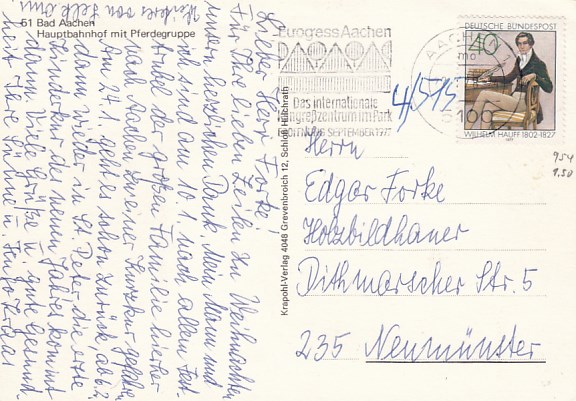 51 Bad Aachen
Hauptbahnhof mit Pferdegruppe
Lieber Herr Forke!
Für Ihre lieben Zeilen zu Weihnachten
unsern herzlichen Dank. Mein Mann und
ich sind am 10.1 nach allem Fest-
trubel der großen Familie hierher
nach Aachen zu einer Kurzkur gefahren.
Am 24. geht es schon zurück, ab 6.2.
dann wieder in St. Peter die erste
Kinderkur des neuen Jahres kommt
dann. Viele Grüße u. gute Gesund-
heit Ihre
Krapohl-Verlag 4048 Grevenbroich 12, Schloß Hülchrath
Eurogress Aachen
Das internationale
Kongreßzentrum im Park
ERÖFFNUNG SEPTEMBER 1977
AACHEN
5100
DEUTSCHE BUNDESPOST
40
WILHELM HAUFF 1802-1827
4/515
954
1.50
Herrn
Edgar Forke
Holzbildhauer
Dithmarscher Str. 5
235 Neumünster